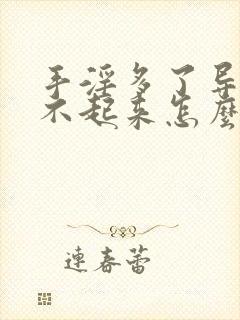 手淫多了导
不起来怎麽
連春蕾